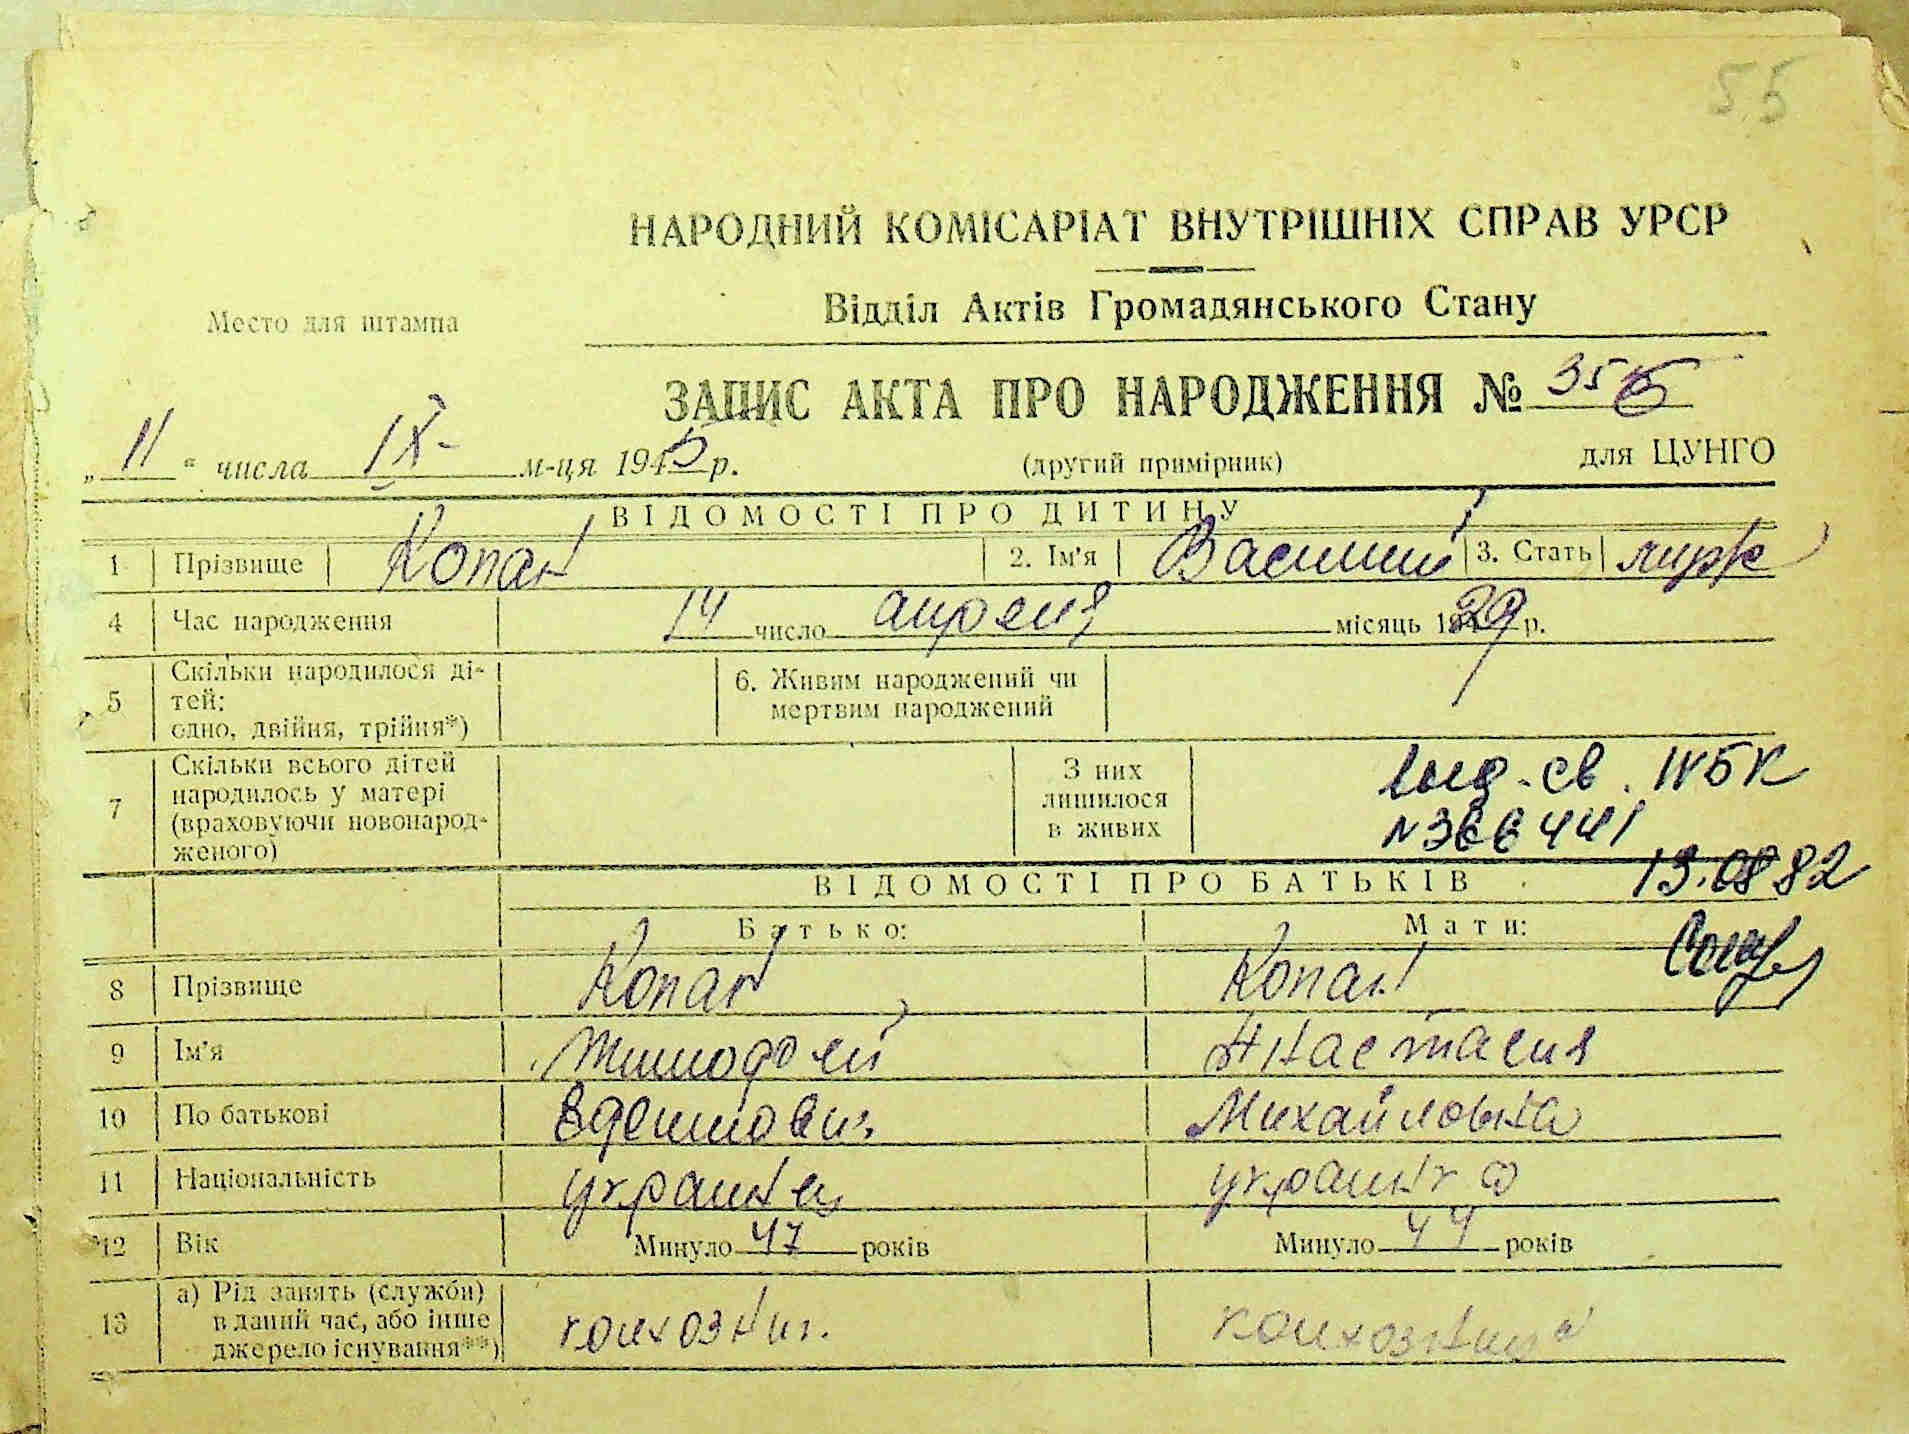 55
НАРОДНИЙ КОМІСАРІАТ ВНУТРІШНІХ СПРАВ УРСР
Відділ Актів Громадянського Стану
Место для штампа
ЗАПИС АКТА ПРО НАРОДЖЕННЯ № 355
„ 11 “ числа IX м-ця 1945 р. (другий примірник) для ЦУНГО
ВІДОМОСТІ ПРО ДИТИНУ
1 Прізвище Копан 2. Ім'я Василий 3. Стать муж
4 Час народження 14 число апреля місяць 1929 р.
5 Скільки народилося ді-
тей:
одно, двійня, трійня*)
6. Живим народжений чи
мертвим народжений
7 Скільки всього дітей
народилось у матері
(враховуючи новонарод-
женого)
З них
лишилося
в живих
выд. св. IV БК
№ 366441
13.08.82
ВІДОМОСТІ ПРО БАТЬКІВ
Батько: Мати:
8 Прізвище Копан Копан
9 Ім'я Тимофей Анастасия
10 По батькові Михайловна
11 Національність украинец украинка
12 Вік Минуло 47 років Минуло 44 років
13 а) Рід занять (служби)
в даний час, або інше
джерело існування**)
колхозник. колхозница